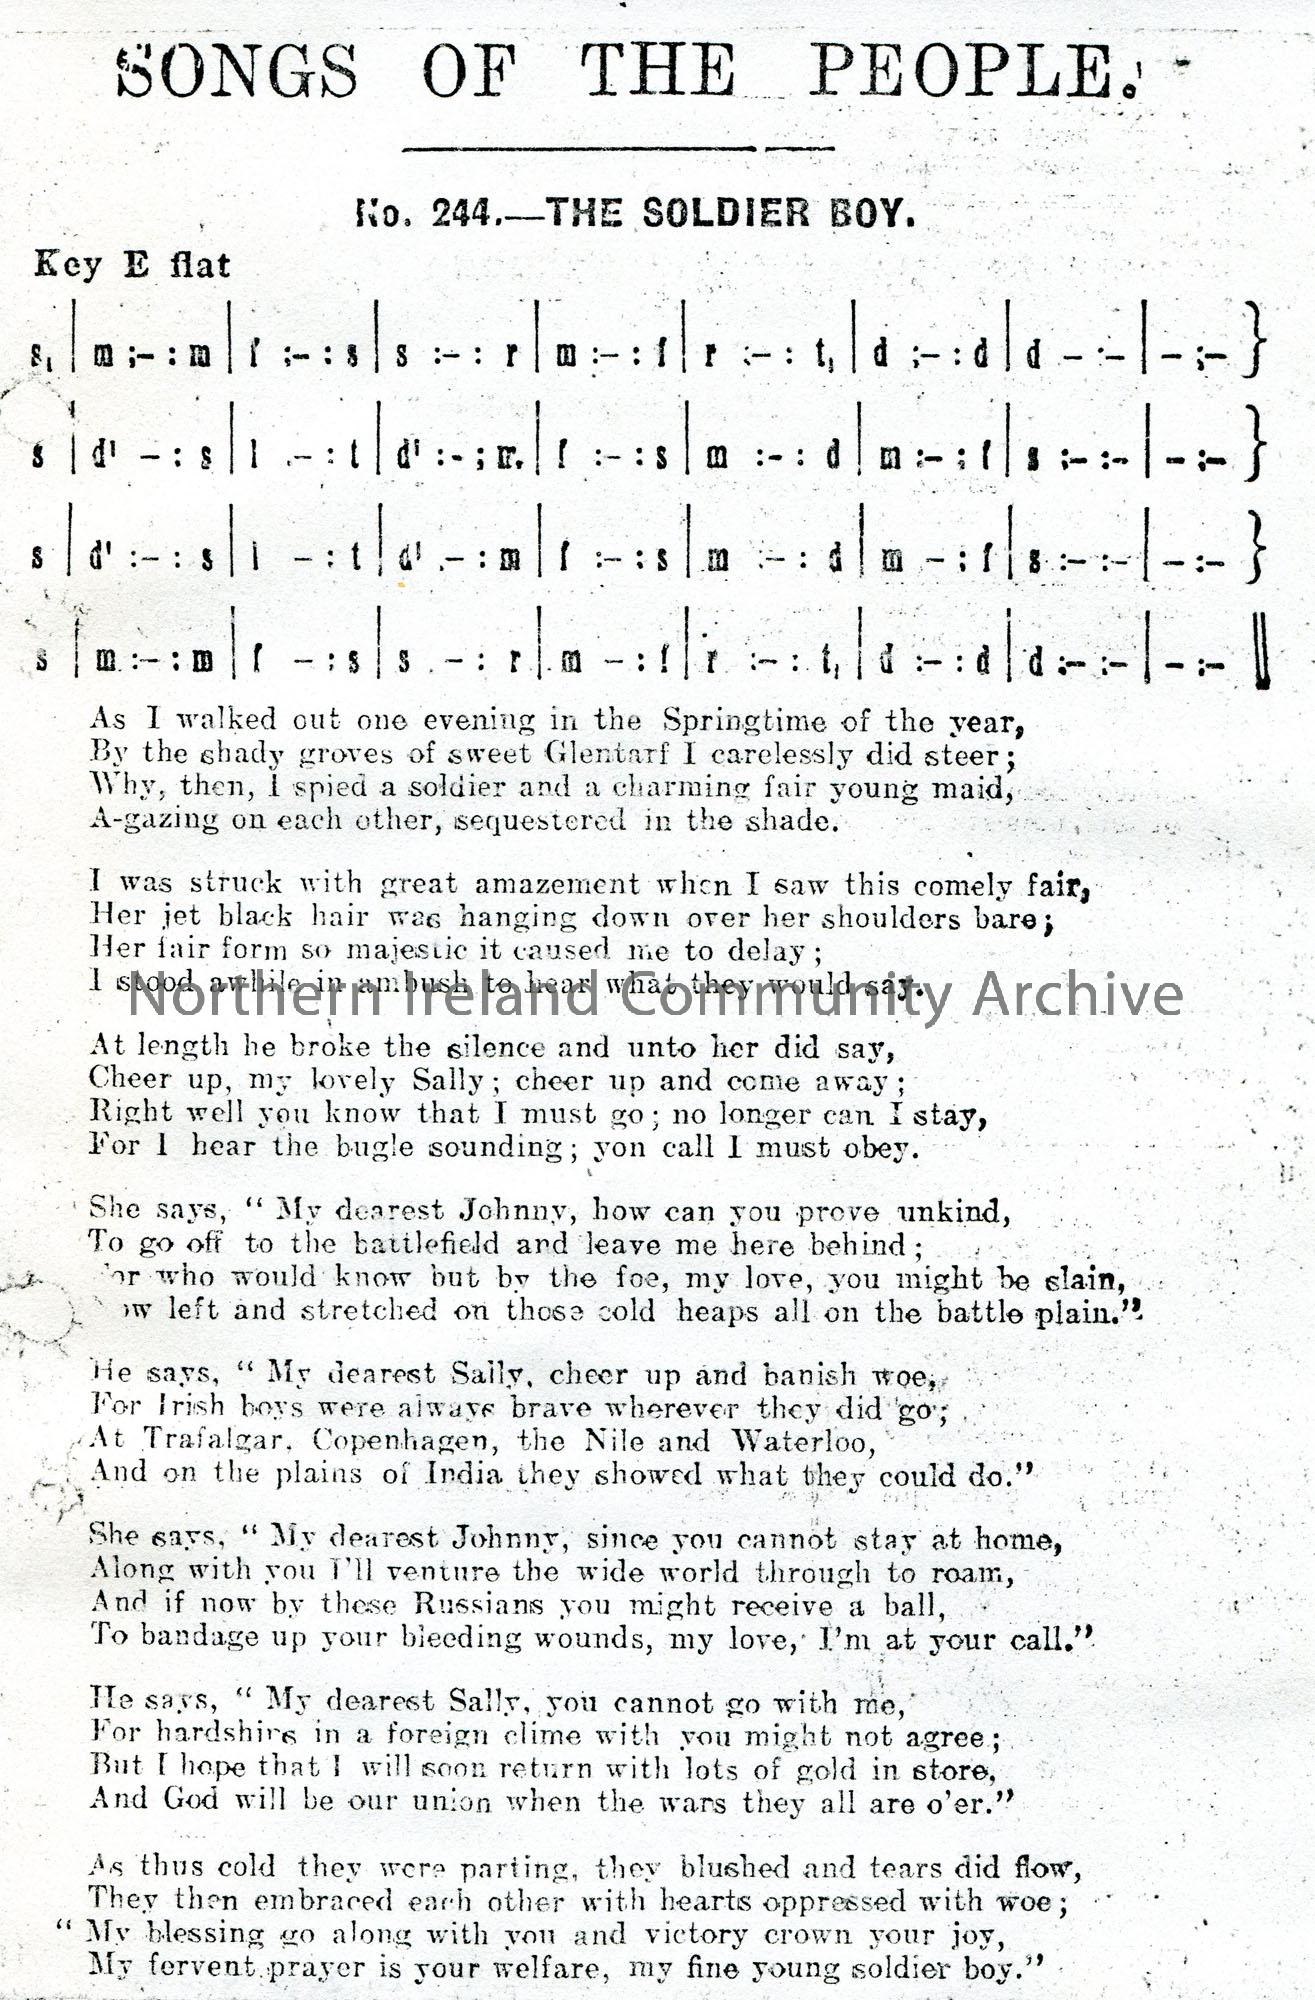 SONGS OF THE PEOPLE.
No. 244.—THE SOLDIER BOY.
Key E flat
s, | m :– : m | f :– : s | s :– : r | m :– : f | r :– : t, | d :– : d | d – :– | – :– }
s | d' – : s | l – : t | d' :– : m | f :– : s | m :– : d | m :– : f | s :– :– | – :– }
s | d' :– : s | l – : t | d' – : m | f :– : s | m – : d | m – : f | s :– :– | – :– }
s | m :– : m | f – : s | s – : r | m – : f | r :– : t, | d :– : d | d :– :– | – :– ‖
As I walked out one evening in the Springtime of the year,
By the shady groves of sweet Glentarf I carelessly did steer;
Why, then, I spied a soldier and a charming fair young maid,
A-gazing on each other, sequestered in the shade.
I was struck with great amazement when I saw this comely fair,
Her jet black hair was hanging down over her shoulders bare;
Her fair form so majestic it caused me to delay;
I stood awhile in ambush to hear what they would say.
Northern Ireland Community Archive
At length he broke the silence and unto her did say,
Cheer up, my lovely Sally; cheer up and come away;
Right well you know that I must go; no longer can I stay,
For I hear the bugle sounding; yon call I must obey.
She says, "My dearest Johnny, how can you prove unkind,
To go off to the battlefield and leave me here behind;
or who would know but by the foe, my love, you might be slain,
ow left and stretched on those cold heaps all on the battle plain."
He says, "My dearest Sally, cheer up and banish woe,
For Irish boys were always brave wherever they did go;
At Trafalgar, Copenhagen, the Nile and Waterloo,
And on the plains of India they showed what they could do."
She says, "My dearest Johnny, since you cannot stay at home,
Along with you I'll venture the wide world through to roam,
And if now by these Russians you might receive a ball,
To bandage up your bleeding wounds, my love, I'm at your call."
He says, "My dearest Sally, you cannot go with me,
For hardships in a foreign clime with you might not agree;
But I hope that I will soon return with lots of gold in store,
And God will be our union when the wars they all are o'er."
As thus cold they were parting, they blushed and tears did flow,
They then embraced each other with hearts oppressed with woe;
"My blessing go along with you and victory crown your joy,
My fervent prayer is your welfare, my fine young soldier boy."